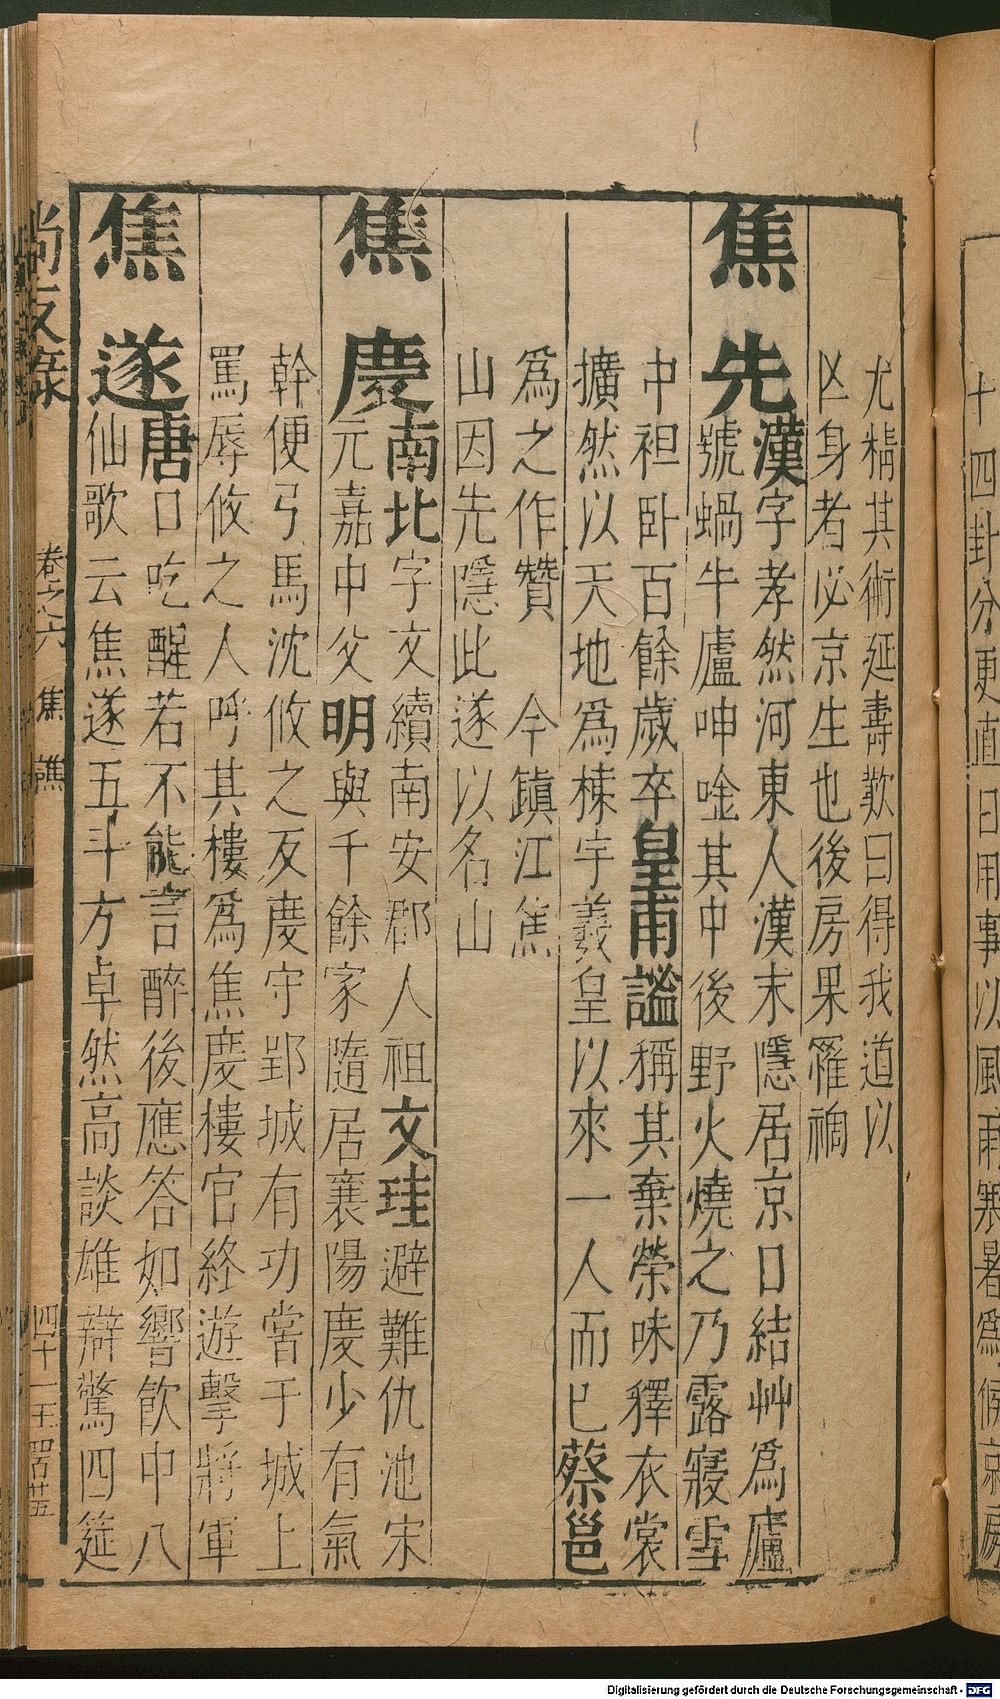 十四卦分更直日用事以風雨寒暑爲候京房
尤精其術延壽歎曰得我道以
凶身者必京生也後房果罹禍
焦先漢字孝然河東人漢末隱居京口結艸爲廬
號蝸牛廬呻唫其中後野火燒之乃露寢雪
中袒臥百餘歲卒皇甫謐稱其棄榮味釋衣裳
擴然以天地爲棟宇羲皇以來一人而已蔡邕
爲之作贊 今鎮江焦
山因先隱此遂以名山
焦慶南北字文續南安郡人祖文珪避難仇池宋
元嘉中父明與千餘家隨居襄陽慶少有氣
幹便弓馬沈攸之反慶守郢城有功嘗于城上
罵辱攸之人呼其樓爲焦慶樓官終遊擊將軍
焦遂唐口吃醒若不能言醉後應答如響飲中八
仙歌云焦遂五斗方卓然高談雄辯驚四筵
尚友錄 卷之六 焦 譙 四十一
Digitalisierung gefördert durch die Deutsche Forschungsgemeinschaft - DFG